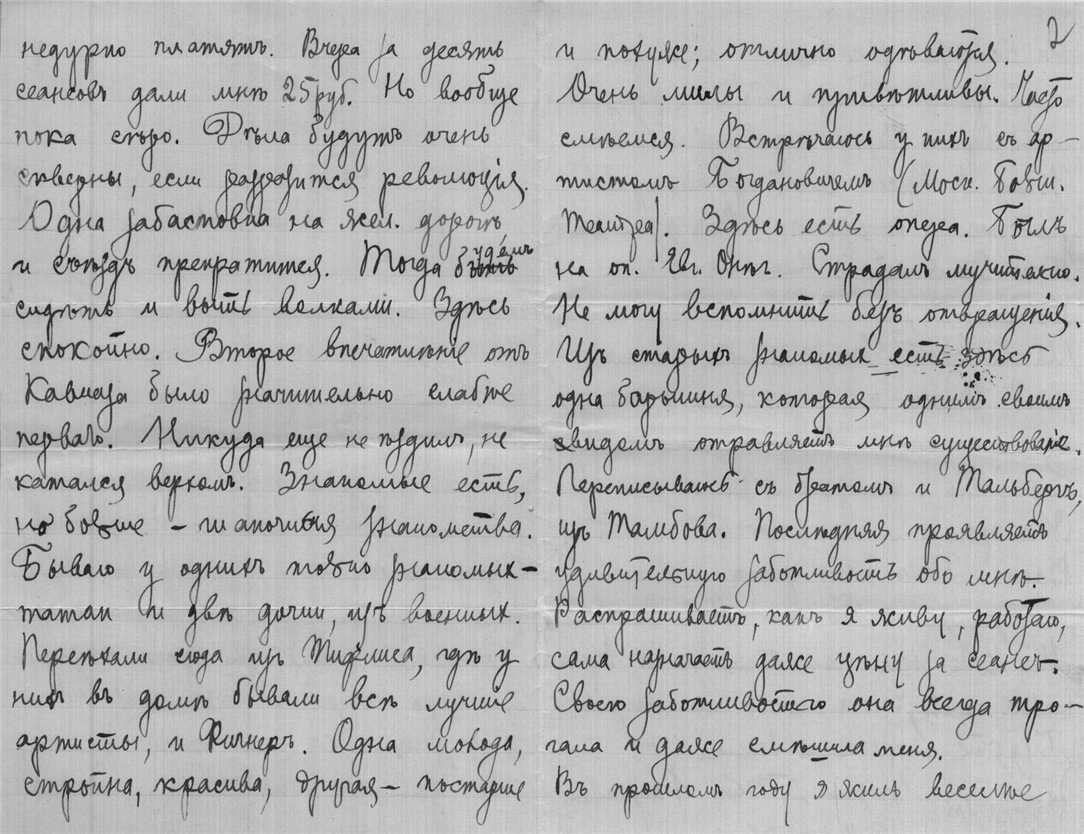 недурно платятъ. Вчера за десять
сеансовъ дали мнѣ 25 руб. Но вообще
пока скоро. Дѣла будутъ очень
скверны, если разразится революція.
Одна забастовка на жел. дорогѣ
и съѣздъ прекратится. Тогда будемъ
сидѣть и выть волками. Здѣсь
спокойно. Второе впечатлѣніе отъ
Кавказа было значительно слабѣе
перваго. Никуда еще не ѣздилъ, не
катался верхомъ. Знакомые есть,
но больше – шапочныя знакомства.
Бываю у однихъ только знакомыхъ –
татап и двѣ дочки, изъ военныхъ.
Переѣхали сюда изъ Тифлиса, гдѣ у
нихъ въ домѣ бывали всѣ лучшіе
артисты, и Фигнеръ. Одна молода,
стройна, красива, другая – постарше
2
и похуже; отлично одѣваются.
Очень милы и привѣтливы. Часто
смѣемся. Встрѣчаюсь у нихъ съ ар-
тистомъ Богдановичемъ (Моск. Больш.
Театра). Здѣсь есть опера. Былъ
на оп. Евг. Онѣг. Страдалъ мучительно.
Не могу вспомнить безъ отвращенія.
Изъ старыхъ знакомых есть здѣсь
одна барышня, которая однимъ своимъ
видомъ отравляетъ мнѣ существованіе.
Переписываюсь съ братомъ и Тальбергъ,
изъ Тамбова. Послѣдняя проявляетъ
удивительную заботливость обо мнѣ.
Распрашиваетъ, какъ я живу, работаю,
сама назначаетъ даже цѣну за сеансъ.
Своею заботливостью она всегда тро-
гала и даже смѣшила меня.
Въ прошломъ году я жилъ веселѣе